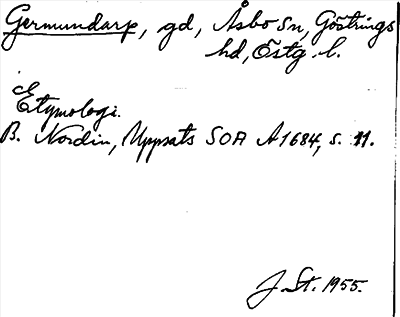 Germundarp, gd, Åsbo sn, Göstrings
hd, Östg. l.
Etymologi.
B. Nordin, Uppsats SOA A1684, s. 11.
J. St. 1955.